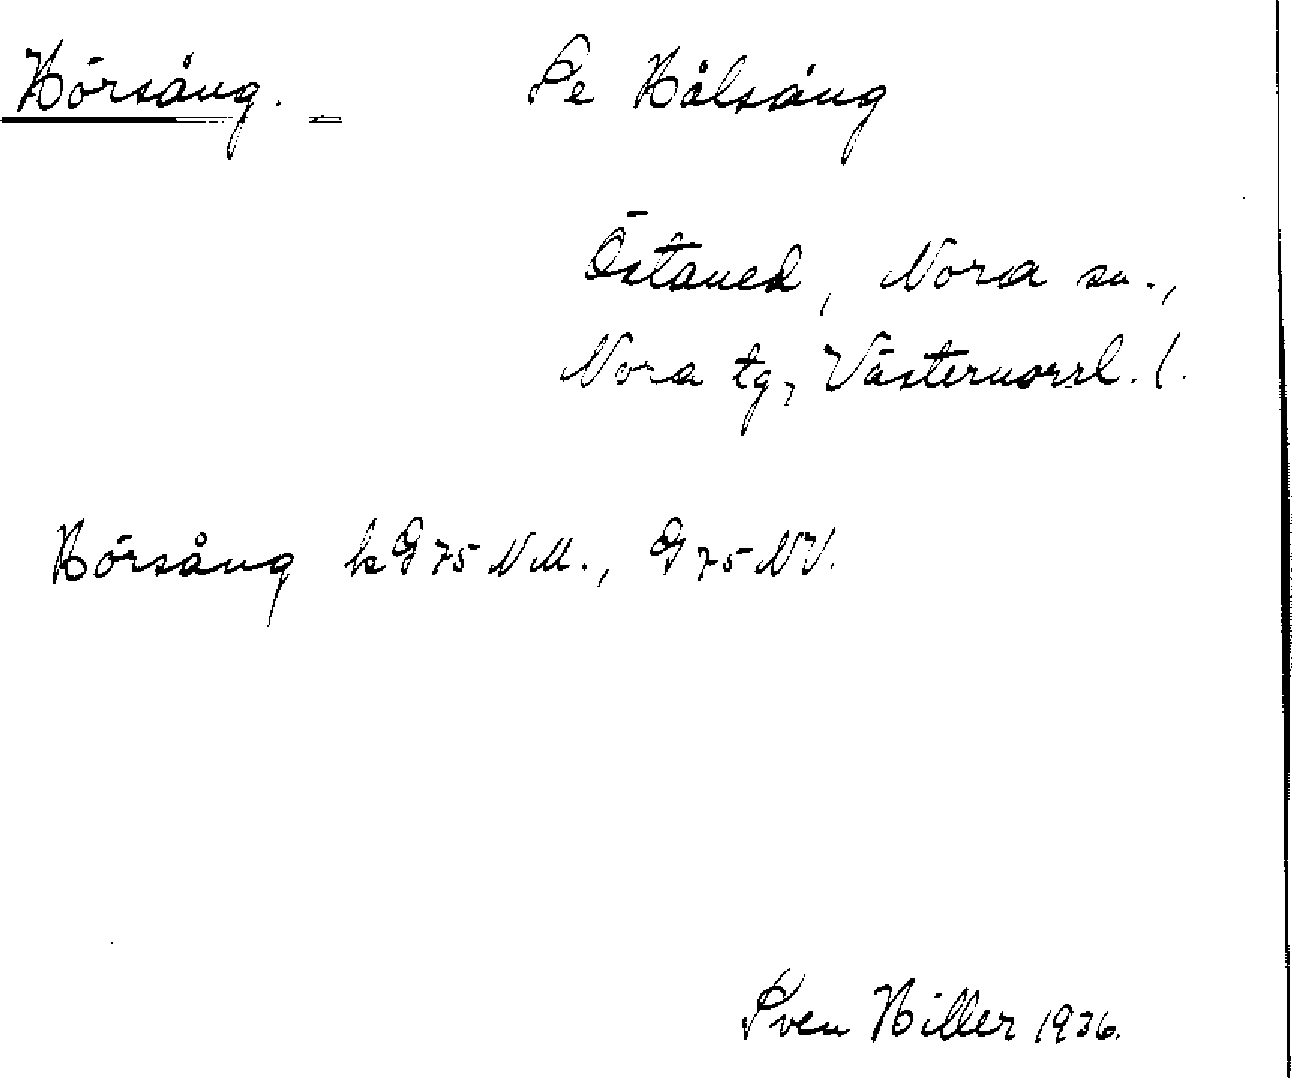 Hörsång. Se Hålsång
Östaned, Nora sn.,
Nora tg, Västernorrl. l.
Hörsång k G 75 NM., G 75 NV.
Sven Hiller 1936.